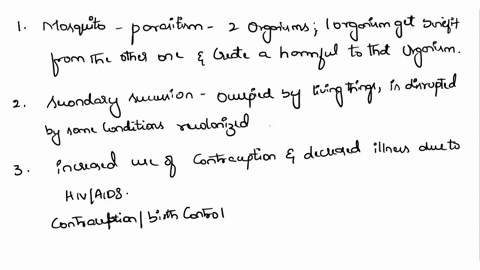 1. Mosquito - parasitism - 2 Organisms; 1 organism get benefit
from the other one & Create a harmful to that Organism.
2. Secondary succession - occupied by living things, is disrupted
by some conditions recolonized
3. increased use of Contraception & decreased illness due to
HIV/AIDS.
Contraception / birth Control